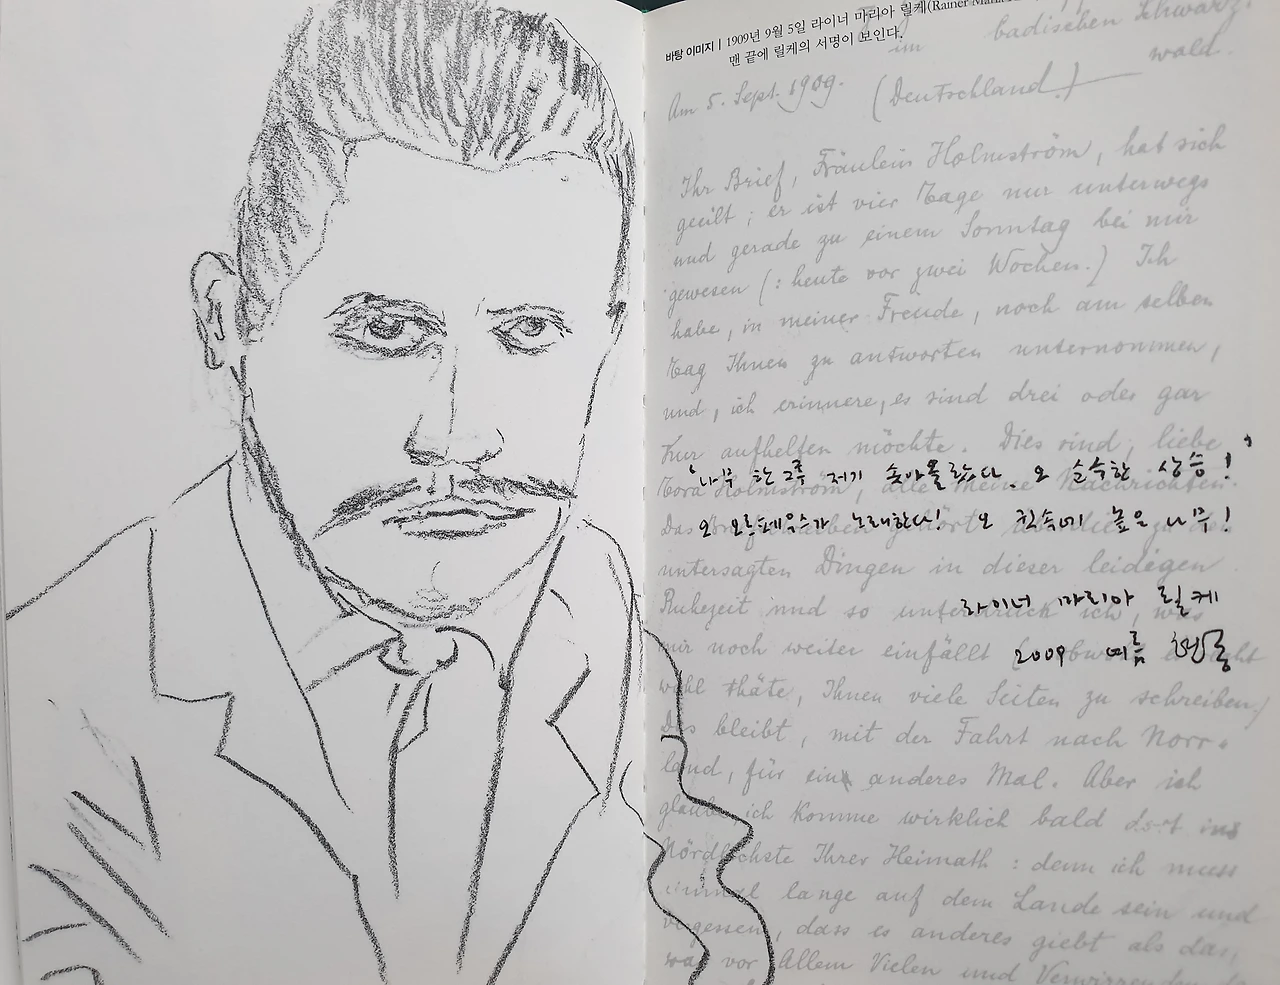 바탕 이미지 | 1909년 9월 5일 라이너 마리아 릴케(Rainer Maria
맨 끝에 릴케의 서명이 보인다.
im badischen Schwarz-
wald.
Am 5. Sept. 1909. (Deutschland.)
Ihr Brief, Fräulein Holmström, hat sich
geeilt; er ist vier Tage nur unterwegs
und gerade zu einem Sonntag bei mir
gewesen (: heute vor zwei Wochen.) Ich
habe, in meiner Freude, noch am selben
Tag Ihnen zu antworten unternommen,
und, ich erinnere, es sind drei oder gar
aufhelfen möchte. Dies sind, liebe
'나무 한 그루 저기 솟아올랐다. 오 순수한 상승!
Tora Holmström, alle meine Nachrichten.
오 오르페우스가 노래한다! 오 귓속에 높은 나무!
Das
untersagten Dingen in dieser leidigen
Ruhezeit und so unterdrück ich, was
라이너 마리아 릴케
mir noch weiter einfällt
2009 여름
wohl thäte, Ihnen viele Seiten zu schreiben.)
Das bleibt, mit der Fahrt nach Norr-
land, für ein anderes Mal. Aber ich
glaube, ich komme wirklich bald dort ins
Nördlichste Ihrer Heimath: denn ich muss
einmal lange auf dem Lande sein und
vergessen, dass es anderes giebt als das,
was vor Allem Vielen und Verwirrenden